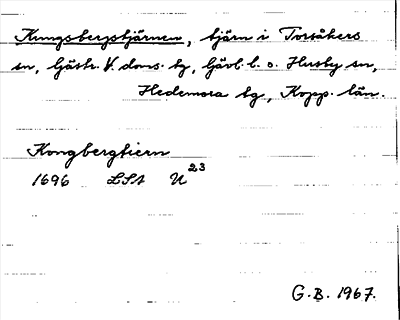 Kungsbergstjärnen, tjärn i Torsåkers
sn, Gästr. V. doms. tg, Gävl. l. o. Husby sn,
Hedemora tg, Kopp. län.
Kongbergtiern
1696 LSA U 23
G.B. 1967.